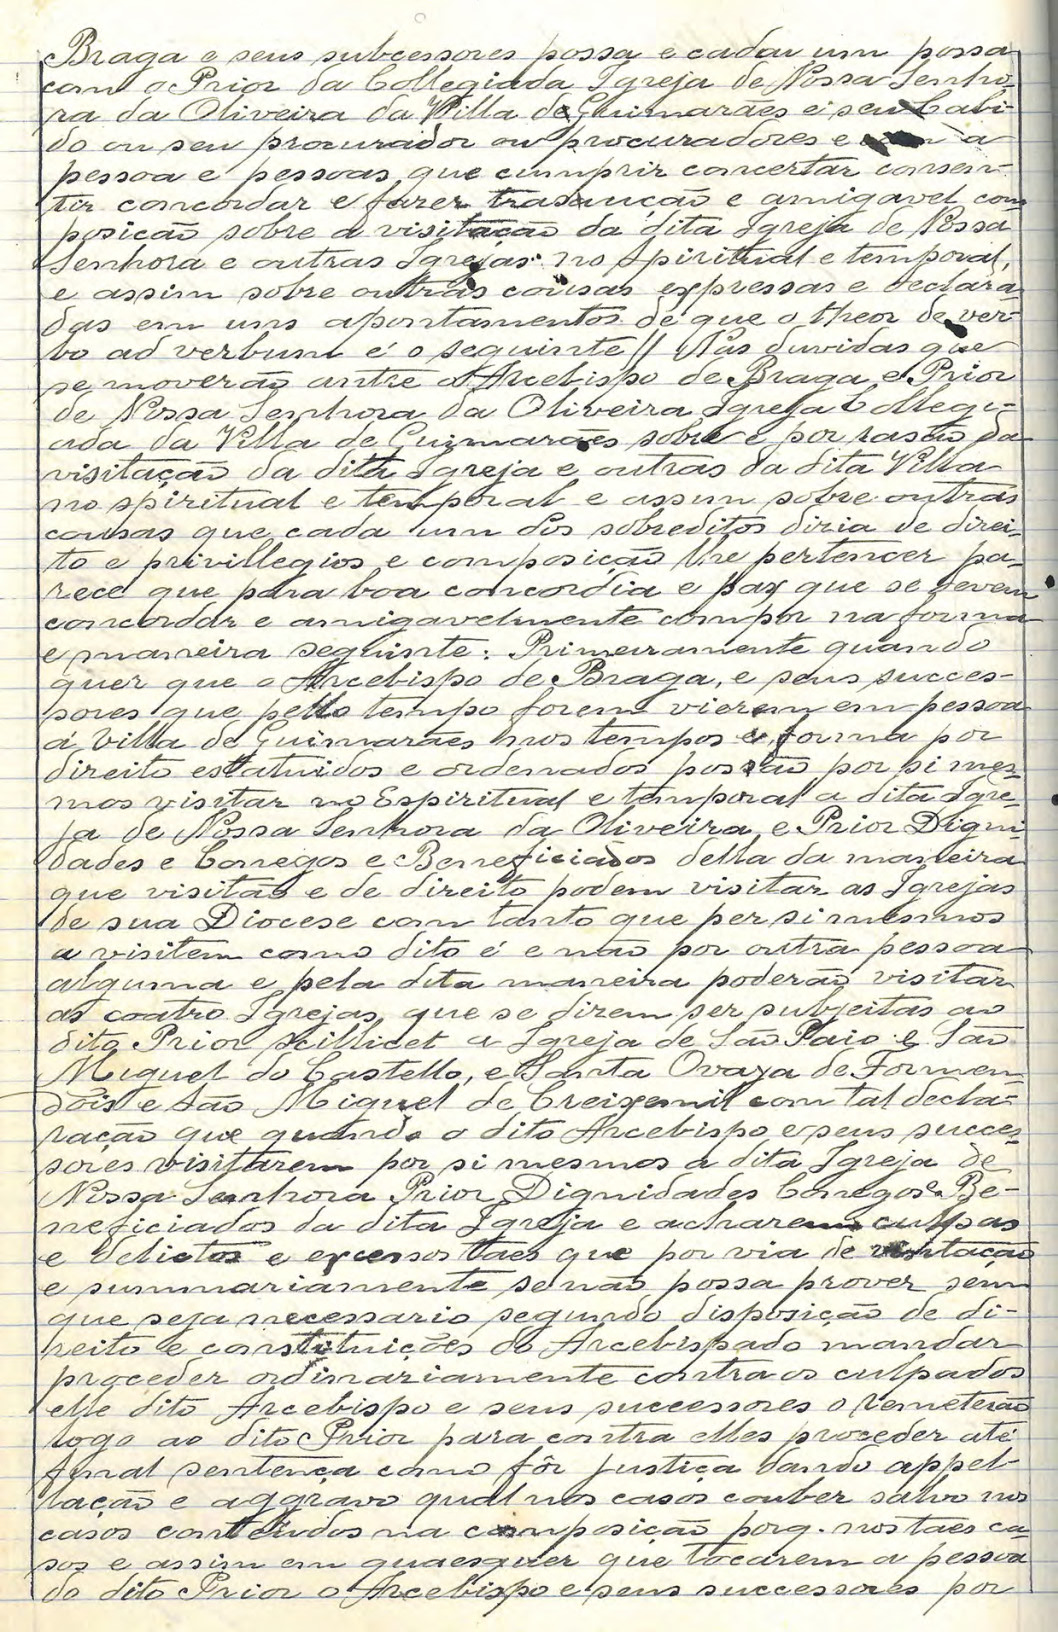 Braga e seus subcessores possa e cada um possa
com o Prior da Collegiada Igreja de Nossa Senho-
ra da Oliveira da Villa de Guimarães e seu Cabi-
do ou seu procurador ou procuradores e com a
pessoa e pessoas que cumprir concertar consen-
tir concordar e fazer trasaução e amigavel com-
posição sobre a visitação da dita Igreja de Nossa
Senhora e outras Igrejas no spiritual e temporal,
e assim sobre outras cousas expressas e declara-
das em uns apontamentos de que o theor de ver-
bo ad verbum é o seguinte // Nas duvidas que
se moverão antre o Arcebispo de Braga e Prior
de Nossa Senhora da Oliveira Igreja Collegi-
ada da Villa de Guimarães sobre e por rasão da
visitação da dita Igreja e outras da dita Villa
no spiritual e temporal e assim sobre outras
cousas que cada um dos sobreditos diria de direi-
to e privillegios e composição lhe pertencer pa-
rece que para boa concordia e paz que se devem
concordar e amigavelmente compor na forma
e maneira seguinte: Primeiramente quando
quer que o Arcebispo de Braga, e seus succes-
sores que pello tempo forem vierem em pessoa
á Villa de Guimarães nos tempos e forma por
direito estatuidos e ordenados possão por si mes-
mos visitar no Espiritual e temporal a dita Igre-
ja de Nossa Senhora da Oliveira, e Prior Digni-
dades e Conegos e Beneficiados della da maneira
que visitão e de direito podem visitar as Igrejas
de sua Diocese com tanto que per si mesmos
a visitem como dito é e não por outra pessoa
alguma e pela dita maneira poderão visitar
as coatro Igrejas, que se dizem ser subjeitas ao
dito Prior scillicet a Igreja de São Paio e São
Miguel do Castello, e Santa Ovaya de Fermen-
dois e São Miguel de Creixemil com tal decla-
ração que quando o dito Arcebispo e seus succes-
sores visitarem por si mesmos a dita Igreja de
Nossa Senhora Prior Dignidades Conegos e Be-
neficiados da dita Igreja e acharem culpas
e delictos e excessos taes que por via de visitação
e summariamente se não possa prover sem
que seja necessario segundo disposição de di-
reito e constituições do Arcebispado mandar
proceder ordinariamente contra os culpados
elle dito Arcebispo e seus successores o remeterão
logo ao dito Prior para contra elles proceder até
final sentença como fôr justiça dando appel-
lação e aggravo qual nos casos couber salvo nos
casos conteudos na composição porq. nos taes ca-
sos e assim em quaesquer que tocarem a pessoa
do dito Prior o Arcebispo e seus successores por